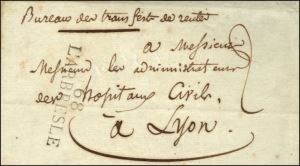 Bureau des transferts de rentes
a Messieurs
Messieurs les administrateurs
des hopitaux Civils.
à Lyon.
68
LARBRESLE